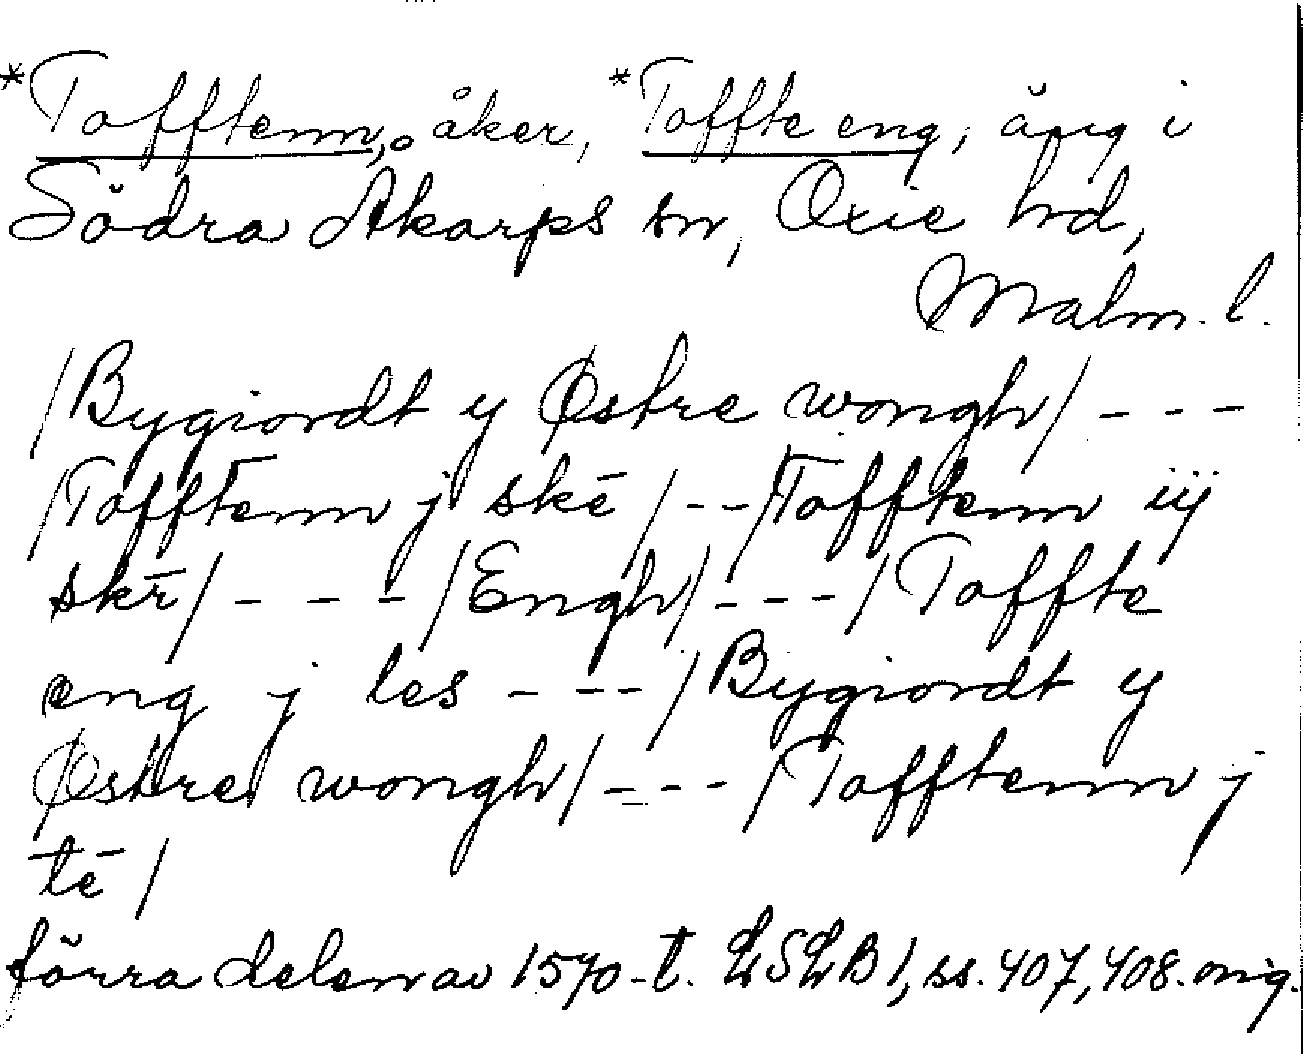 *Tofftenn, åker, *Toffte eng, äng i
Södra Åkarps sn, Oxie hd,
Malm. l.
/Bygiordt y Østre wongh/ - - -
/Tofftenn j skē / - - /Tofftenn iij
skr̄/ - - - /Engh/ - - - /Toffte
eng j les - - - /Bygiordt y
Østre wongh/ - - - /Tofftenn j
tē /
förra delen av 1570-t. LSLB 1, ss. 407, 408. orig.